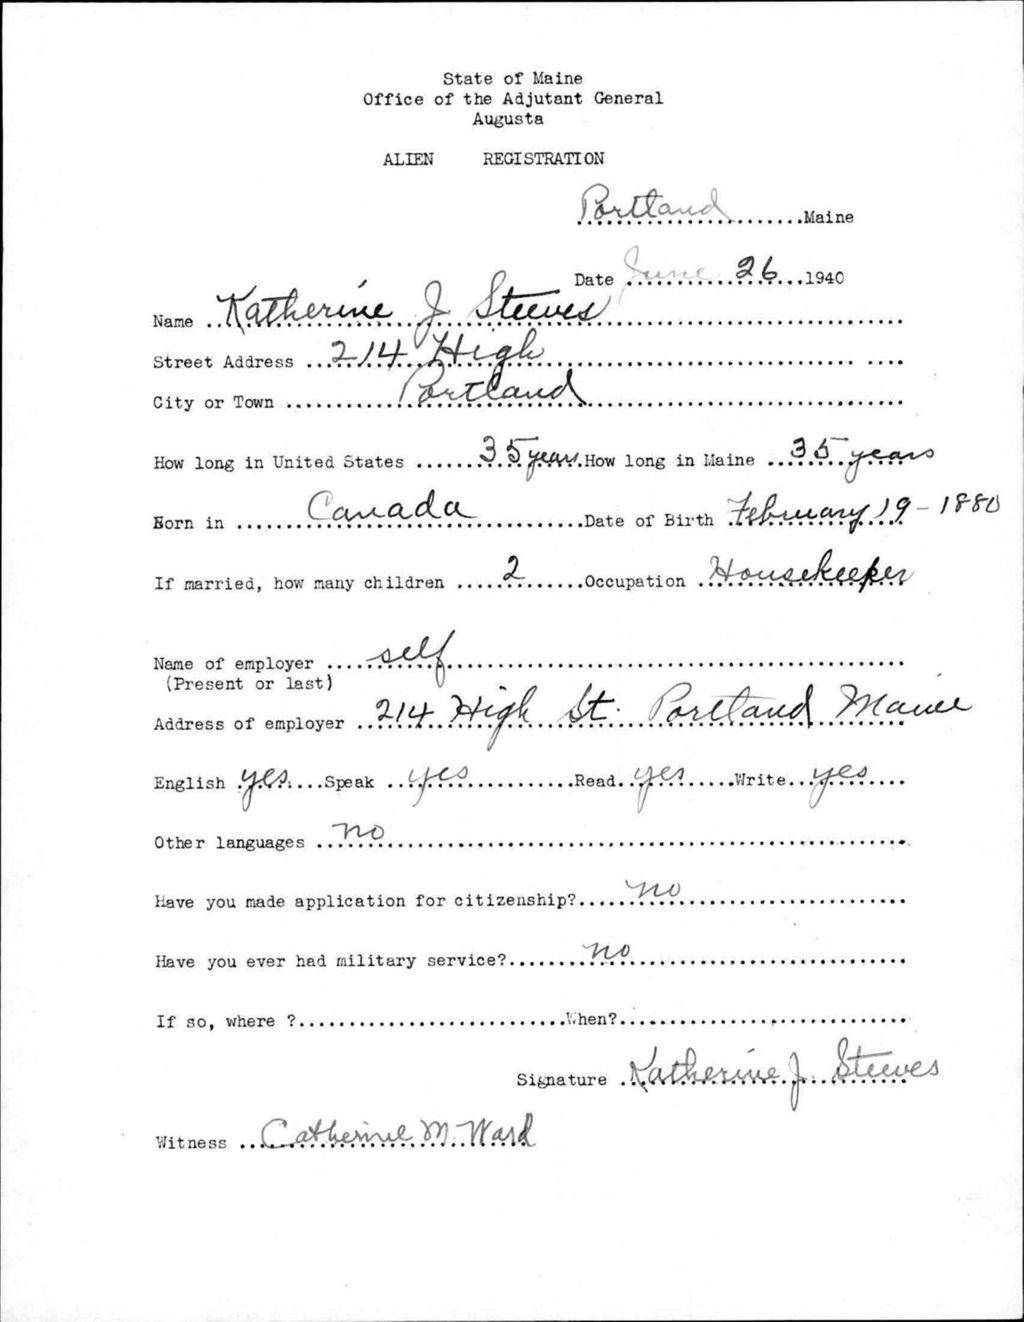 State of Maine
Office of the Adjutant General
Augusta
ALIEN REGISTRATION
Portland Maine
Date June 26 1940
Name Katherine J Steeves
Street Address 214 High
City or Town Portland
How long in United States 35 years How long in Maine 35 years
Born in Canada Date of Birth February 19-1880
If married, how many children 2 Occupation Housekeeper
Name of employer self
(Present or last)
Address of employer 214 High St. Portland Maine
English yes Speak yes Read yes Write yes
Other languages no
Have you made application for citizenship? no
Have you ever had military service? no
If so, where ? When?
Signature Katherine J. Steeves
Witness Catherine M. Ward